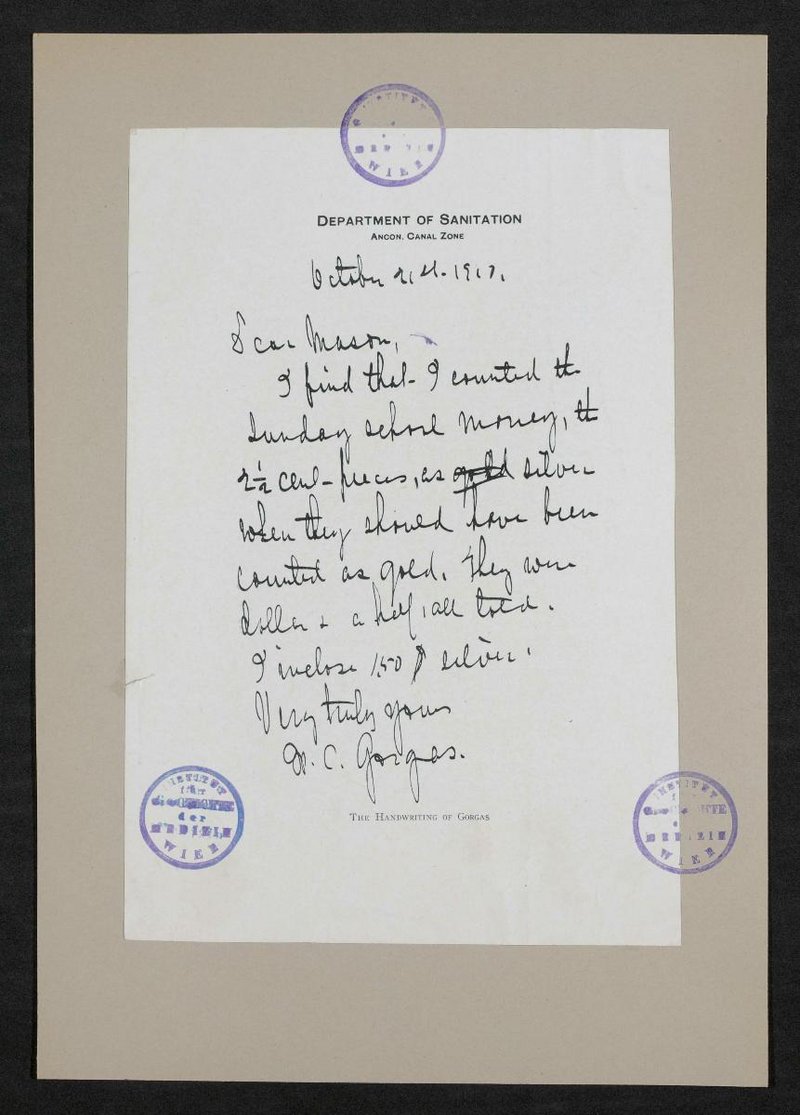 INSTITUT
MEDIZIN
WIEN
DEPARTMENT OF SANITATION
ANCON, CANAL ZONE
October 21st.
Dear Mason,
I find that I counted the
Sunday school money, the
2½ cent pieces, as gold silver
when they should have been
counted as gold. They were
dollar & a half, all told.
I inclose 1.50 silver.
Very truly yours
W. C. Gorgas.
THE HANDWRITING OF GORGAS
INSTITUT
für
GESCHICHTE
der
MEDIZIN
WIEN
INSTITUT
GESCHICHTE
MEDIZIN
WIEN